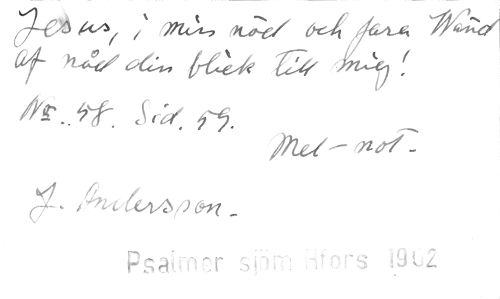 Jesus, i min nöd och fara Wänd
af nåd din blick till mig!
No. 58. Sid. 59.
Mel-not.
J. Andersson.
Psalmer sjöm Hfors 1902